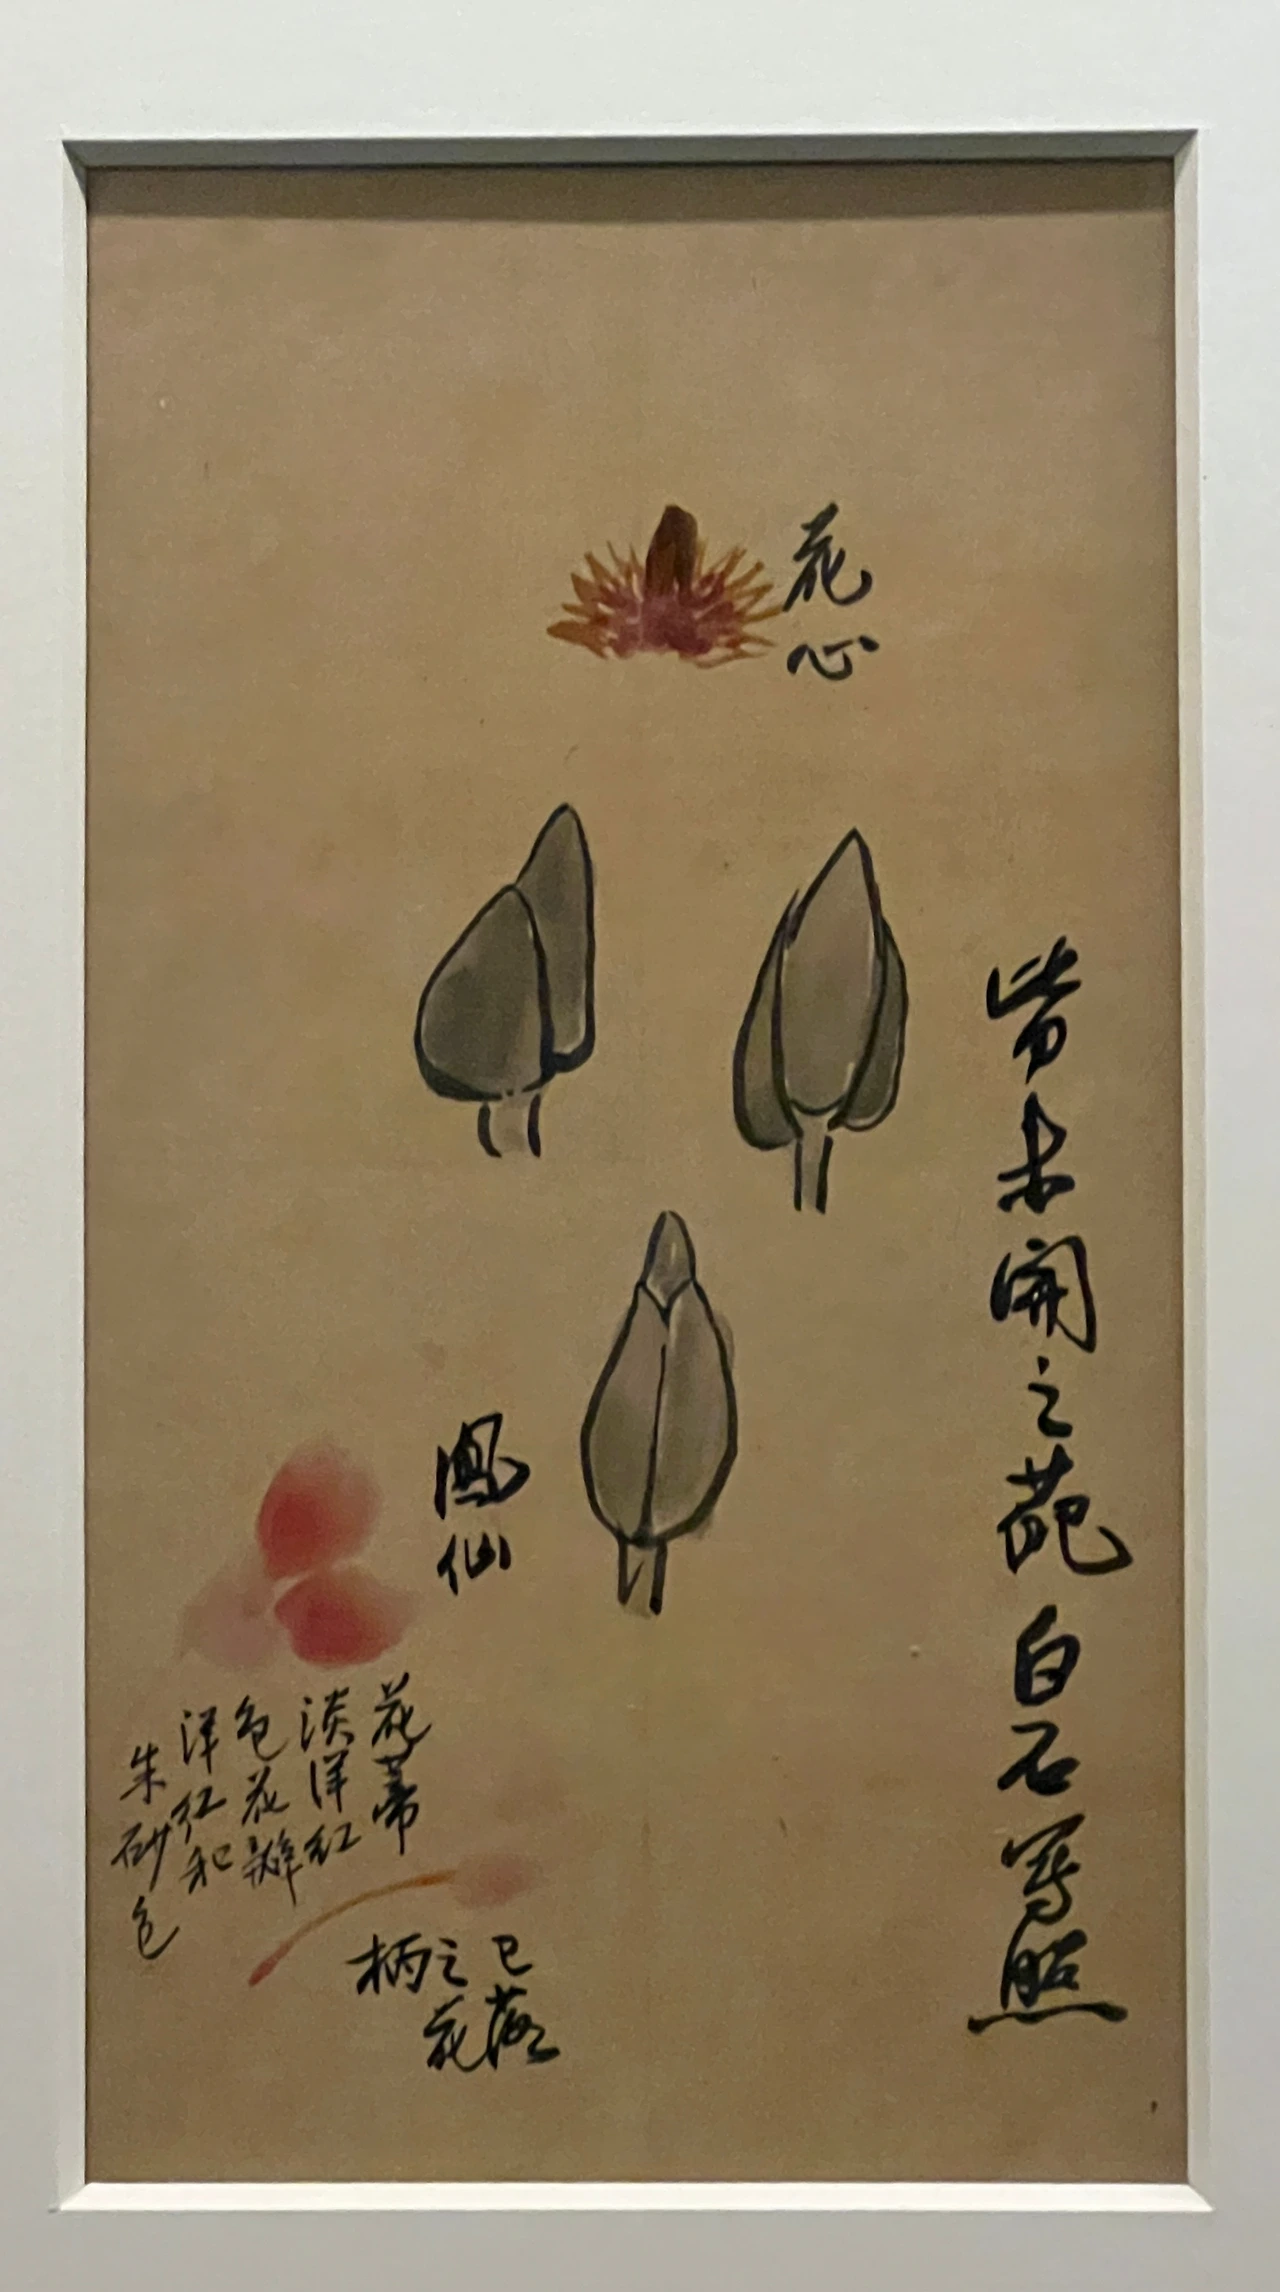 花心
皆未開之葩白石写照
鳳仙
花蒂
淡洋红
色花瓣
洋红和
朱砂色
已落
之花
柄